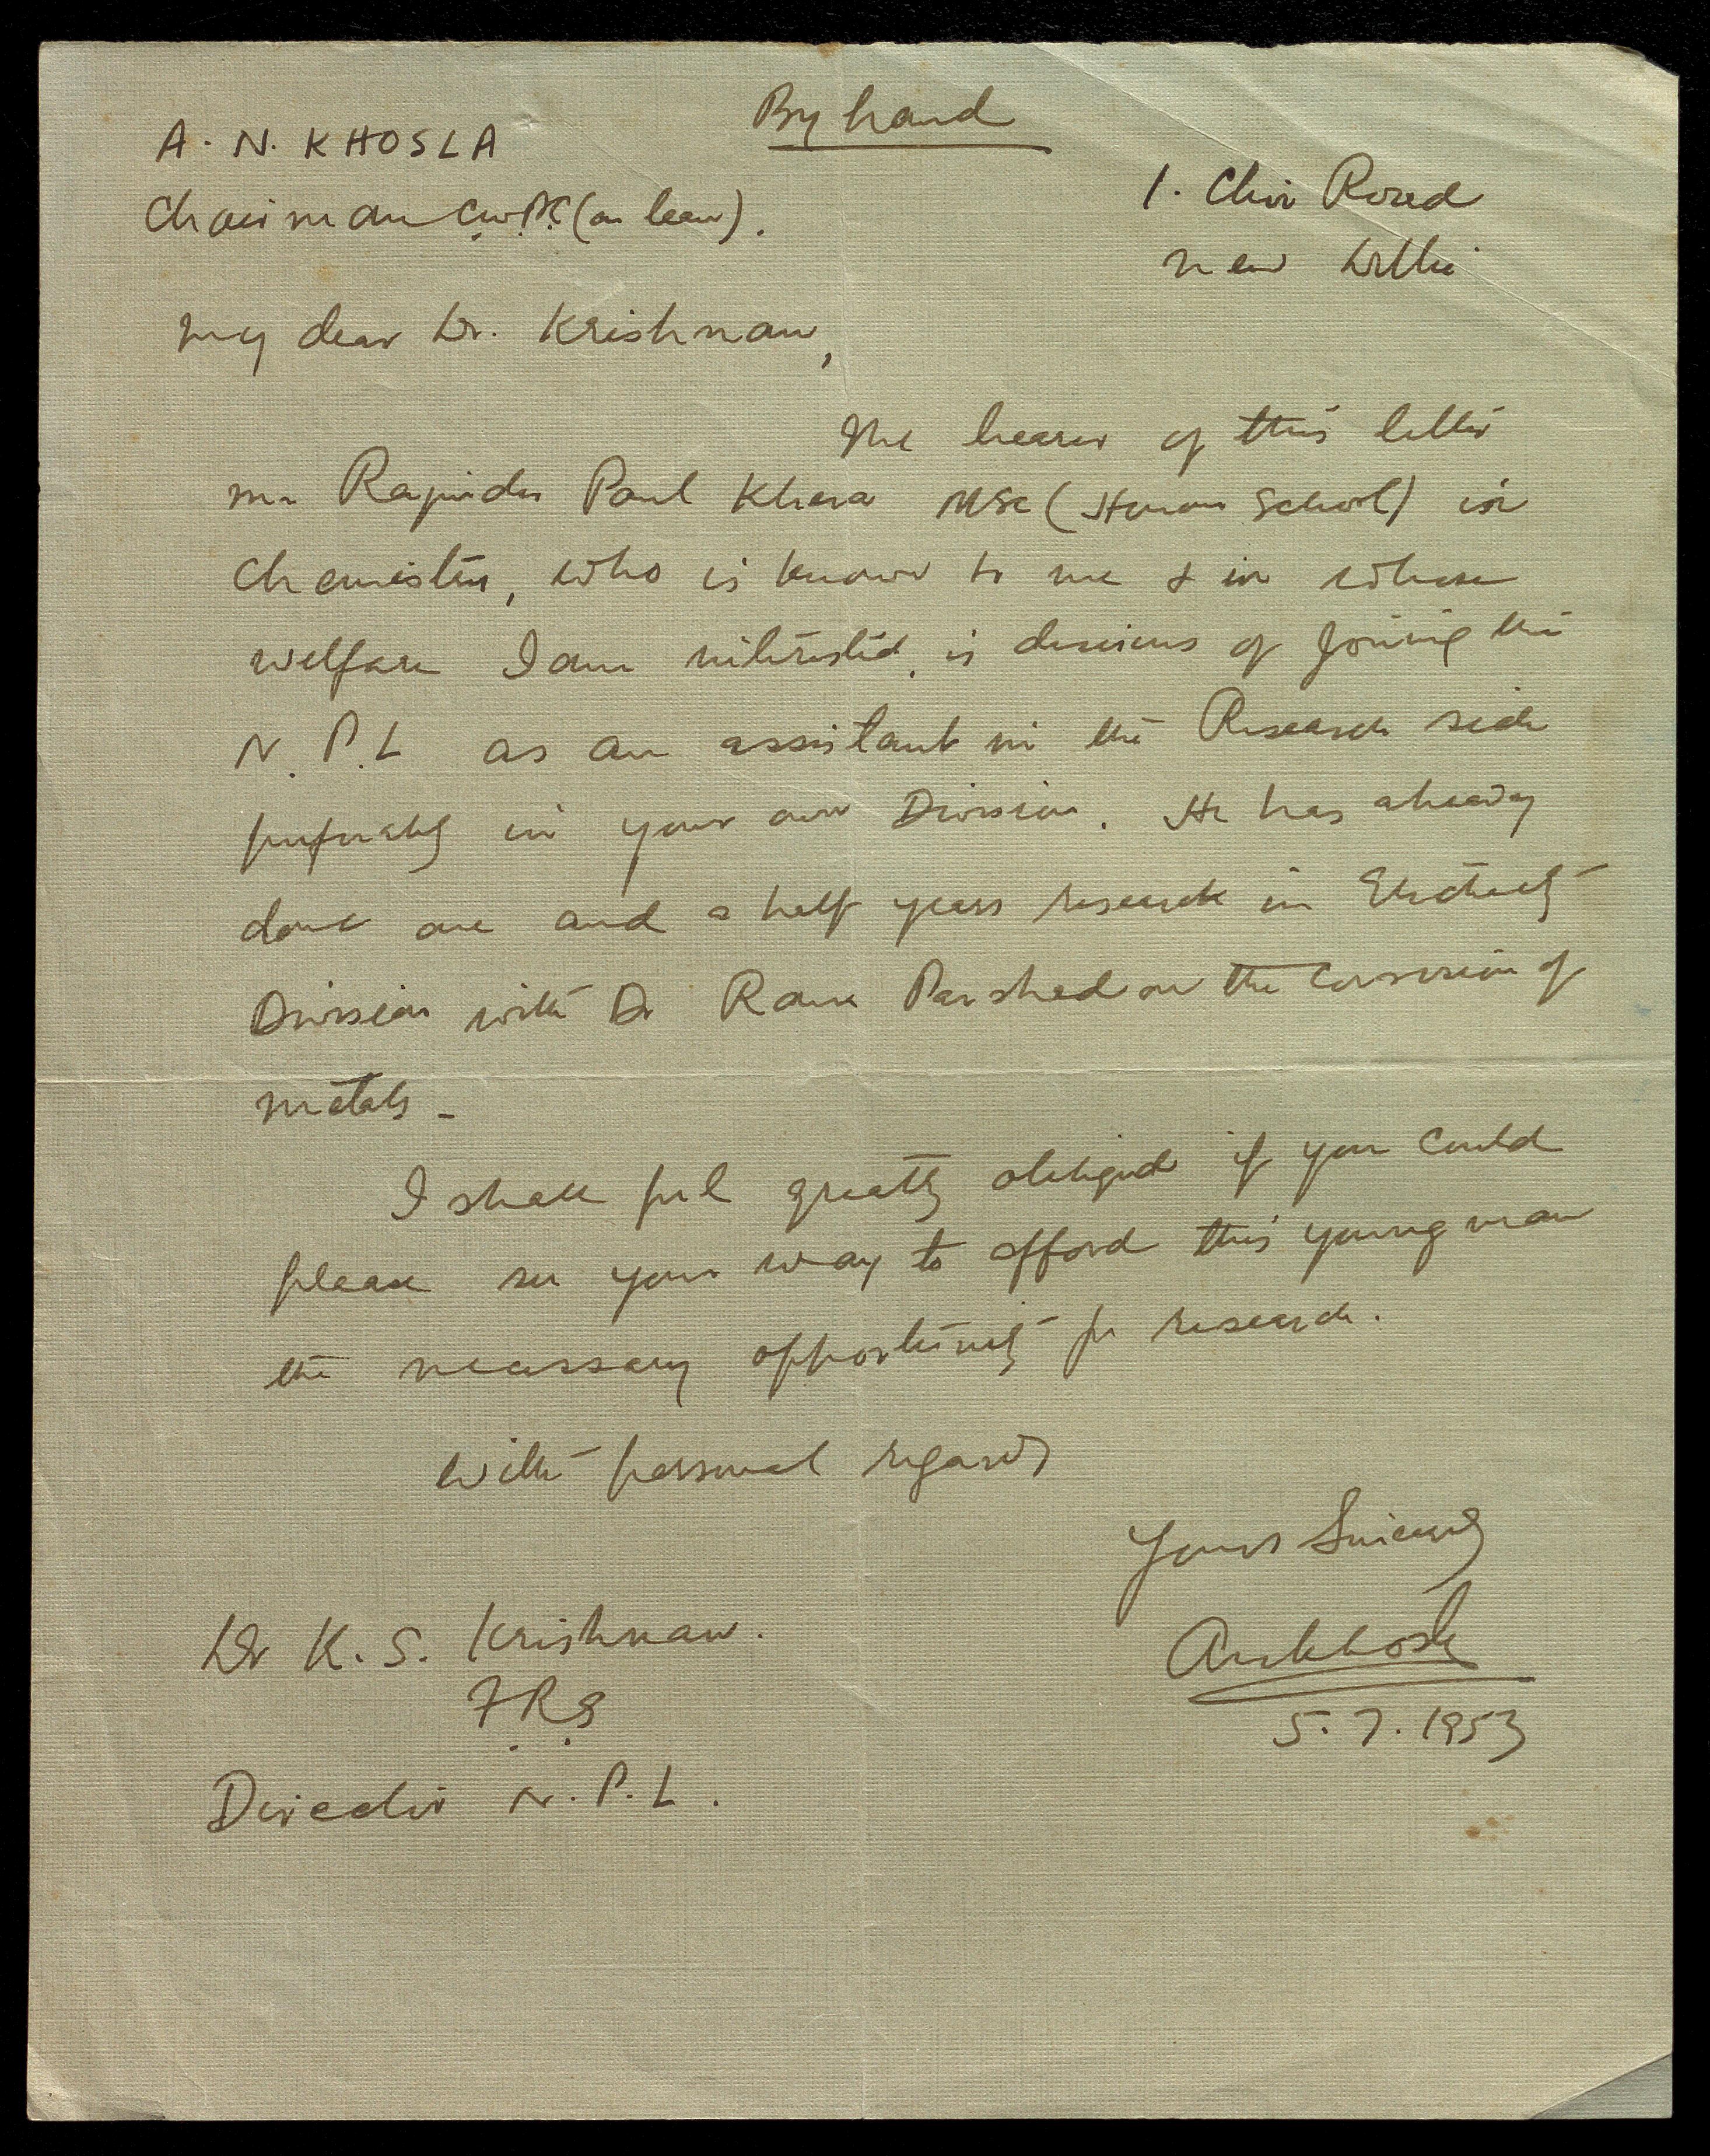 By hand
A. N. KHOSLA
Chairman C.W.P.C. (on leave).
1. Clive Road
New Delhi
My dear Dr. Krishnan,
The bearer of this letter
Mr Rajinder Paul Khera MSc (Honours School) in
Chemistry, who is known to me & in whose
welfare I am interested, is desirous of joining the
N.P.L as an assistant in the Research side
preferably in your own Division. He has already
done one and a half years research in Electricity
Division with Dr Ram Parshad on the corrosion of
metals -
I shall feel greatly obliged if you could
please see your way to afford this young man
the necessary opportunity for research.
With personal regards
Yours Sincerely
ANKhosla
5.7.1953
Dr K. S. Krishnan.
F.R.S.
Director N.P.L.